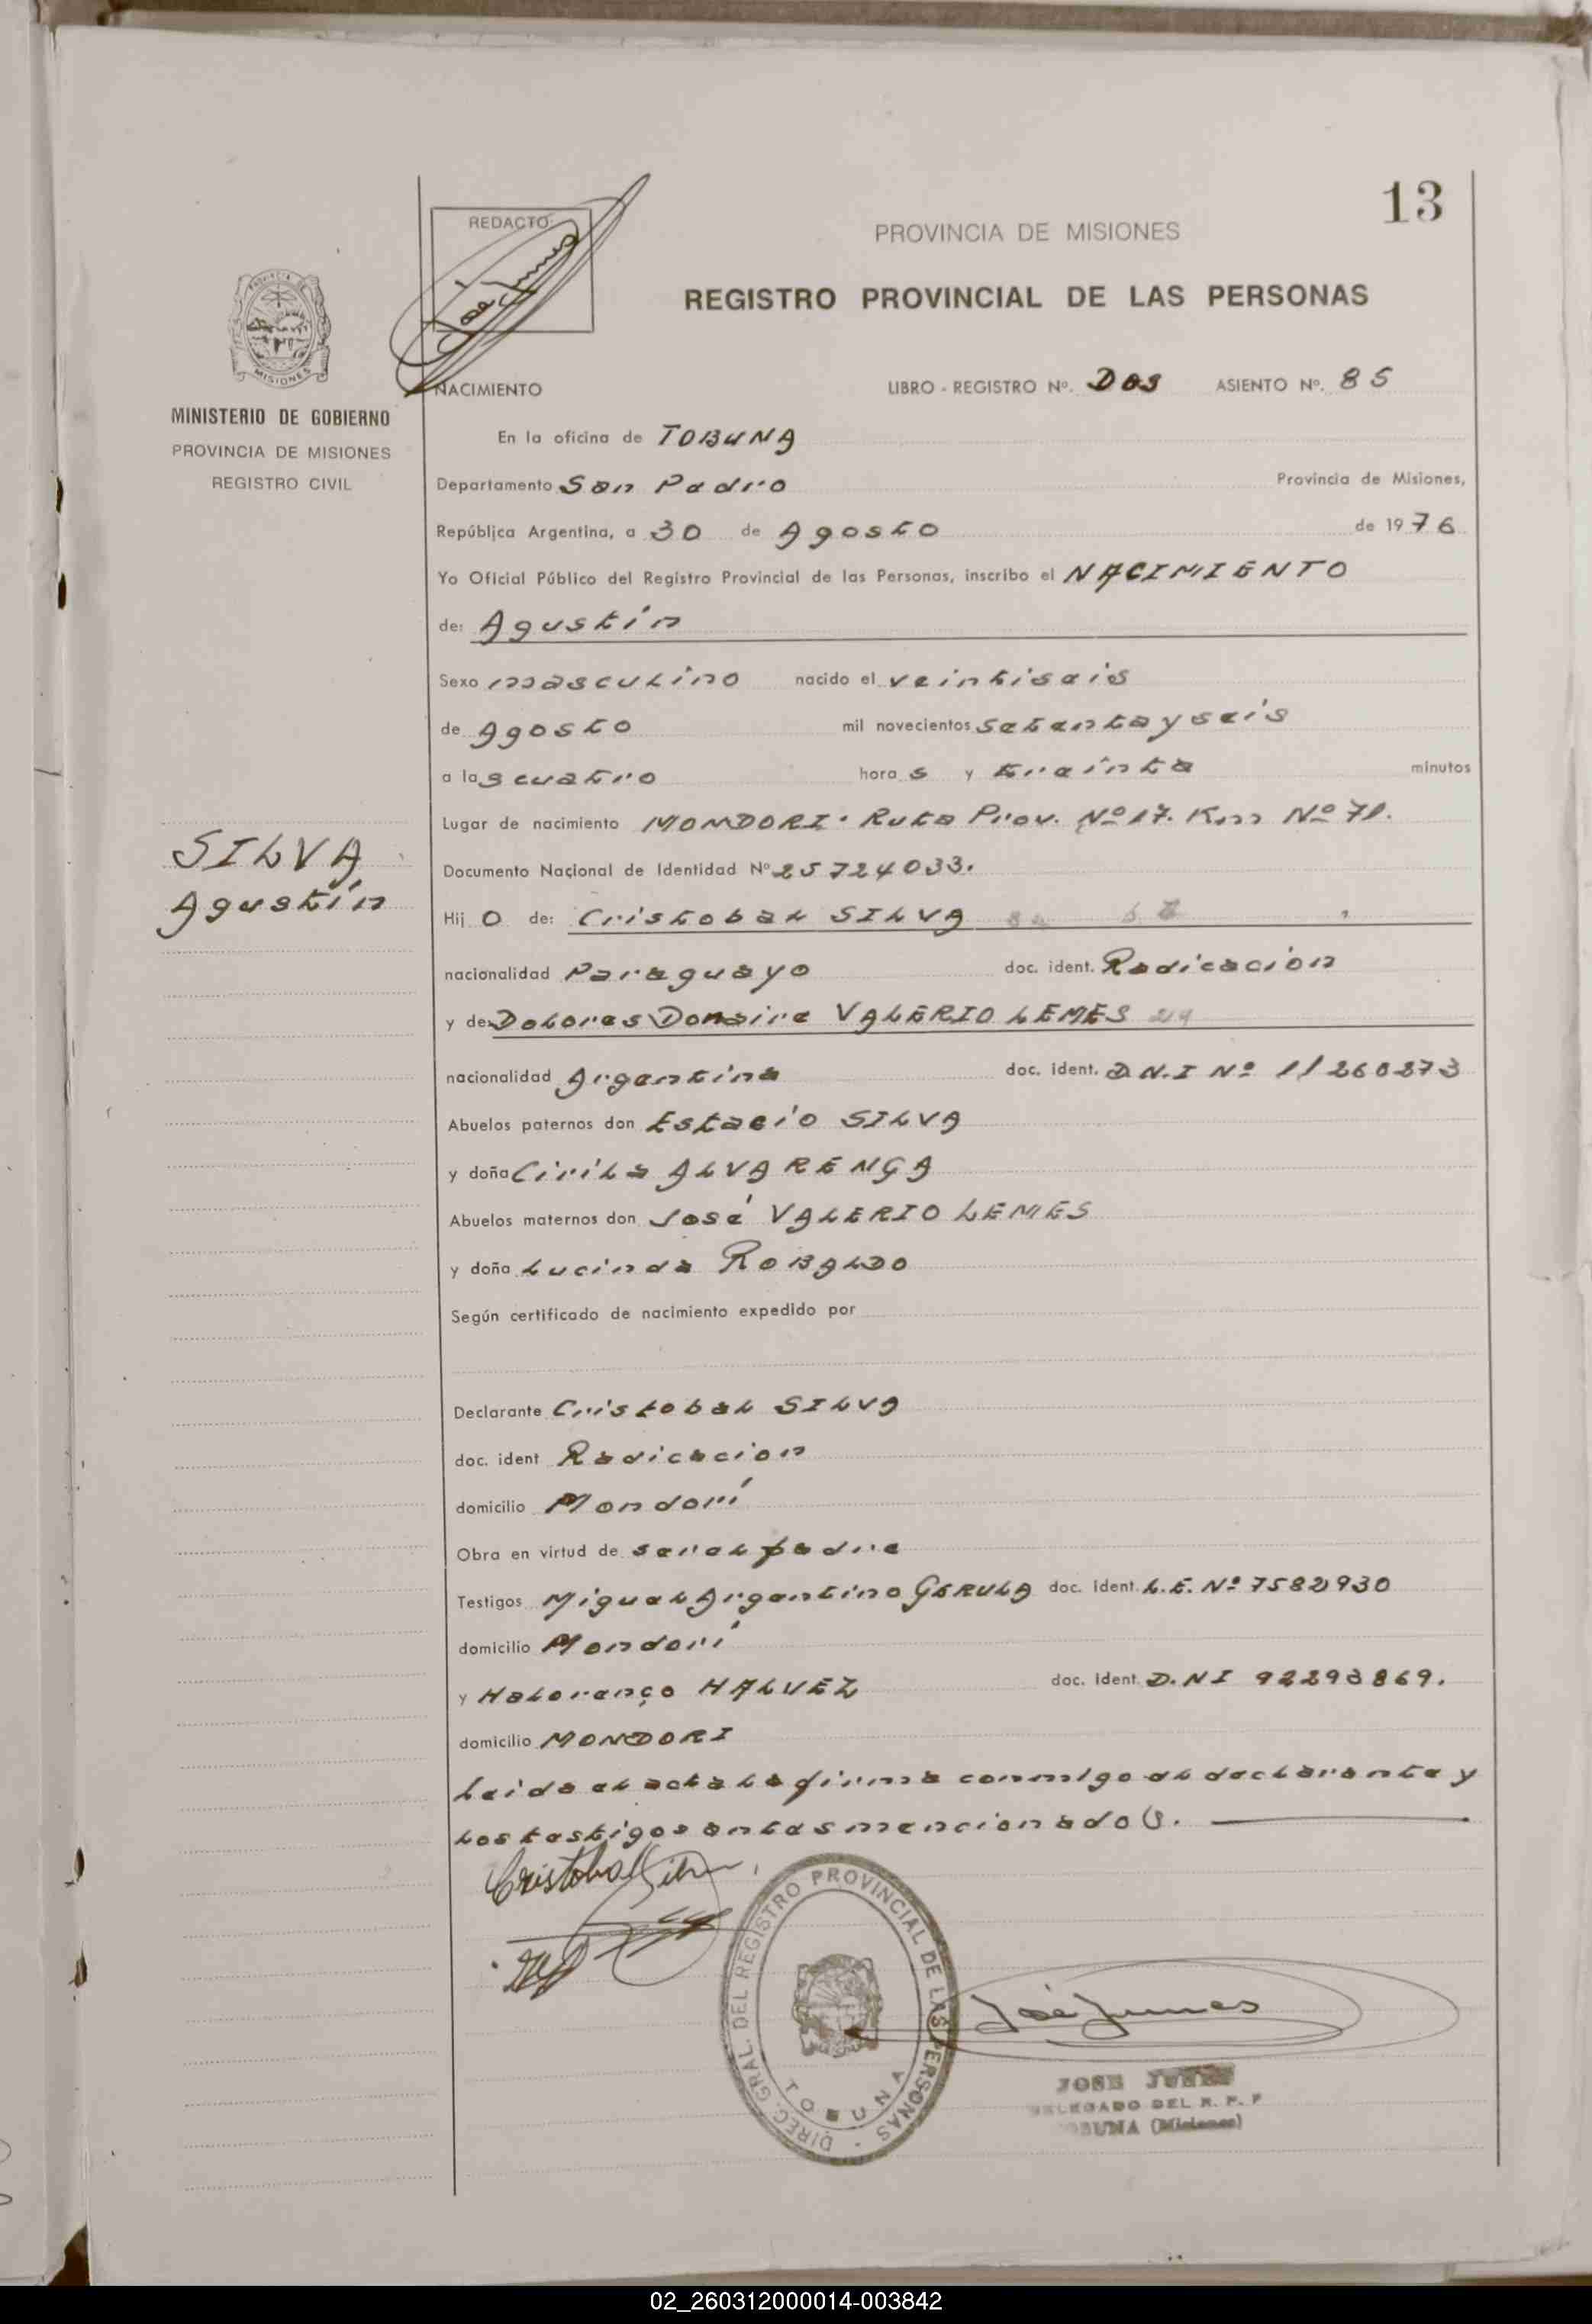 13
REDACTO:
PROVINCIA DE MISIONES
REGISTRO PROVINCIAL DE LAS PERSONAS
MISIONES
MINISTERIO DE GOBIERNO
PROVINCIA DE MISIONES
REGISTRO CIVIL
NACIMIENTO
LIBRO - REGISTRO Nº. DOS ASIENTO Nº. 85
En la oficina de TOBUNA
Departamento San Pedro Provincia de Misiones,
República Argentina, a 30 de Agosto de 1976
Yo Oficial Público del Registro Provincial de las Personas, inscribo el NACIMIENTO
de: Agustín
Sexo masculino nacido el veintiseis
de Agosto mil novecientos setenta y seis
a las cuatro horas y treinta minutos
Lugar de nacimiento MONDORI. Ruta Prov. Nº 17. Km Nº 71.
Documento Nacional de Identidad Nº 25724033.
SILVA
Agustín
Hijo de: Cristobal SILVA
nacionalidad Paraguayo doc. ident. Radicación
y de: Dolores Donaire VALERIO LEMES 24
nacionalidad Argentina doc. ident. D.N.I Nº 11260273
Abuelos paternos don Estacio SILVA
y doña Cirila ALVARENGA
Abuelos maternos don José VALERIO LEMES
y doña Lucinda ROBALDO
Según certificado de nacimiento expedido por
Declarante Cristobal SILVA
doc. ident Radicacion
domicilio Mondorí
Obra en virtud de ser el padre
Testigos Miguel Argentino GERULA doc. ident. L.E. Nº 7582930
domicilio Mondorí
y Halorenço HALVEZ doc. ident. D.NI 92293869.
domicilio MONDORI
Leida el acta la firma conmigo el declarante y
los testigos antes mencionados.
Cristobal Silva
DIREC. GRAL. DEL REGISTRO PROVINCIAL DE LAS PERSONAS
TOBUNA
José Junes
JOSE JUNES
DELEGADO DEL R. P. P
TOBUNA (Misiones)
02_260312000014-003842